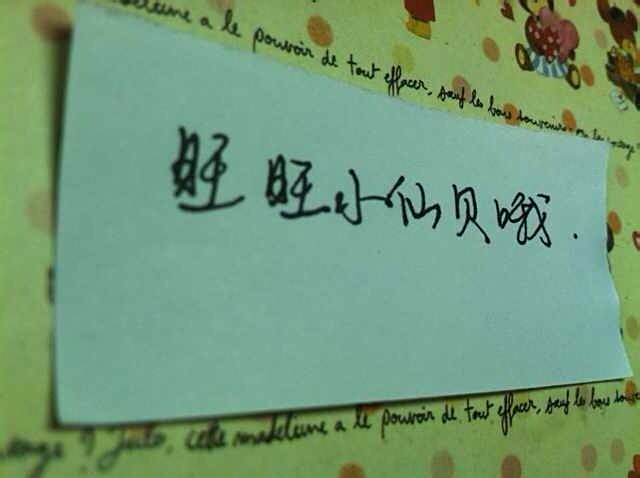 madeleine a le pouvoir de tout effacer, sauf les bons souvenirs
旺旺小仙贝哦.
cette madeleine a le pouvoir de tout effacer, sauf les bons